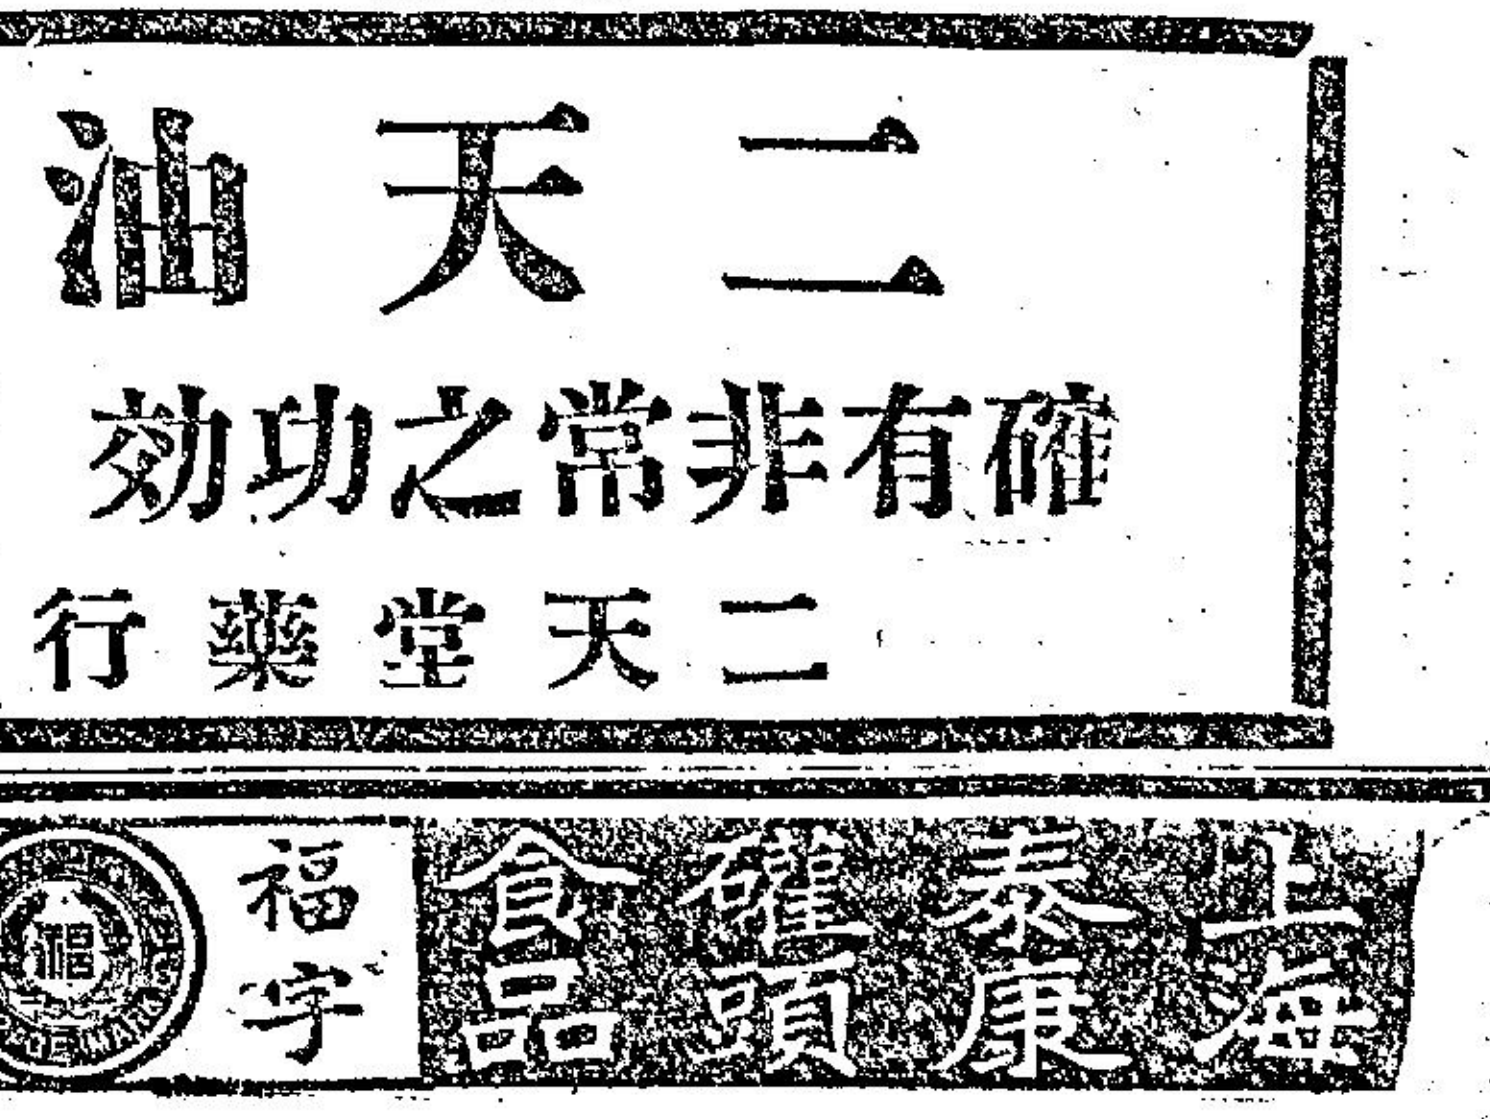 二天油
確有非常之功効
二天堂藥行
上海
泰康
罐頭
食品
福字
福